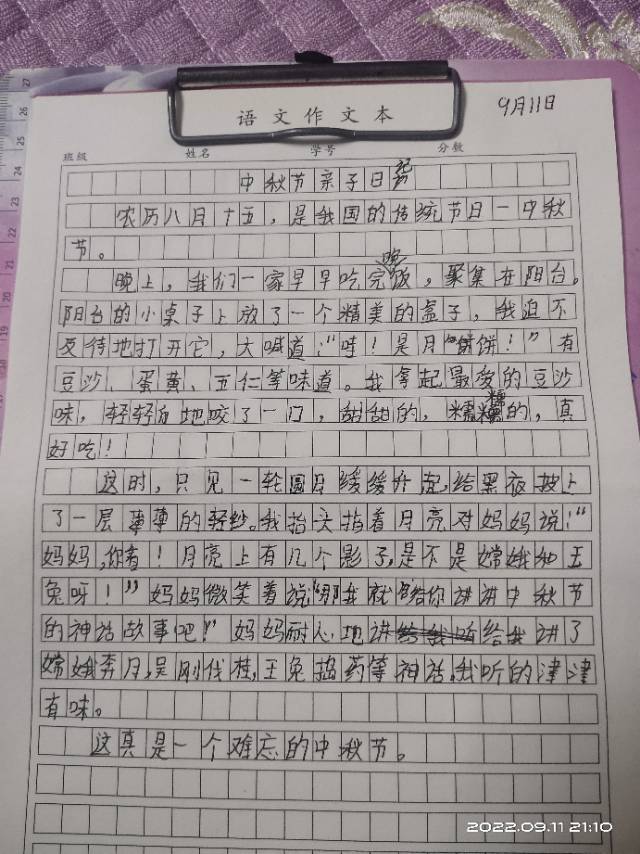 9月11日
语文作文本
班级 姓名 学号 分数
中秋节亲子日记
农历八月十五，是我国的传统节日一中秋
节。
晚上，我们一家早早吃完晚饭，聚集在阳台。
阳台的小桌子上放了一个精美的盒子，我迫不
及待地打开它，大喊道：“哇！是月饼！”有
豆沙、蛋黄、五仁等味道。我拿起最爱的豆沙
味，轻轻地咬了一口，甜甜的，糯糯的，真
好吃！
这时，只见一轮圆月缓缓升起，给黑夜披上
了一层薄薄的轻纱。我抬头指着月亮对妈妈说：“
妈妈，你看！月亮上有几个影子，是不是嫦娥和玉
兔呀！”妈妈微笑着说“那我就给你讲讲中秋节
的神话故事吧！”妈妈耐心地讲给我讲了
嫦娥奔月，吴刚伐桂，玉兔捣药等神话，我听的津津
有味。
这真是一个难忘的中秋节。
2022.09.11 21:10